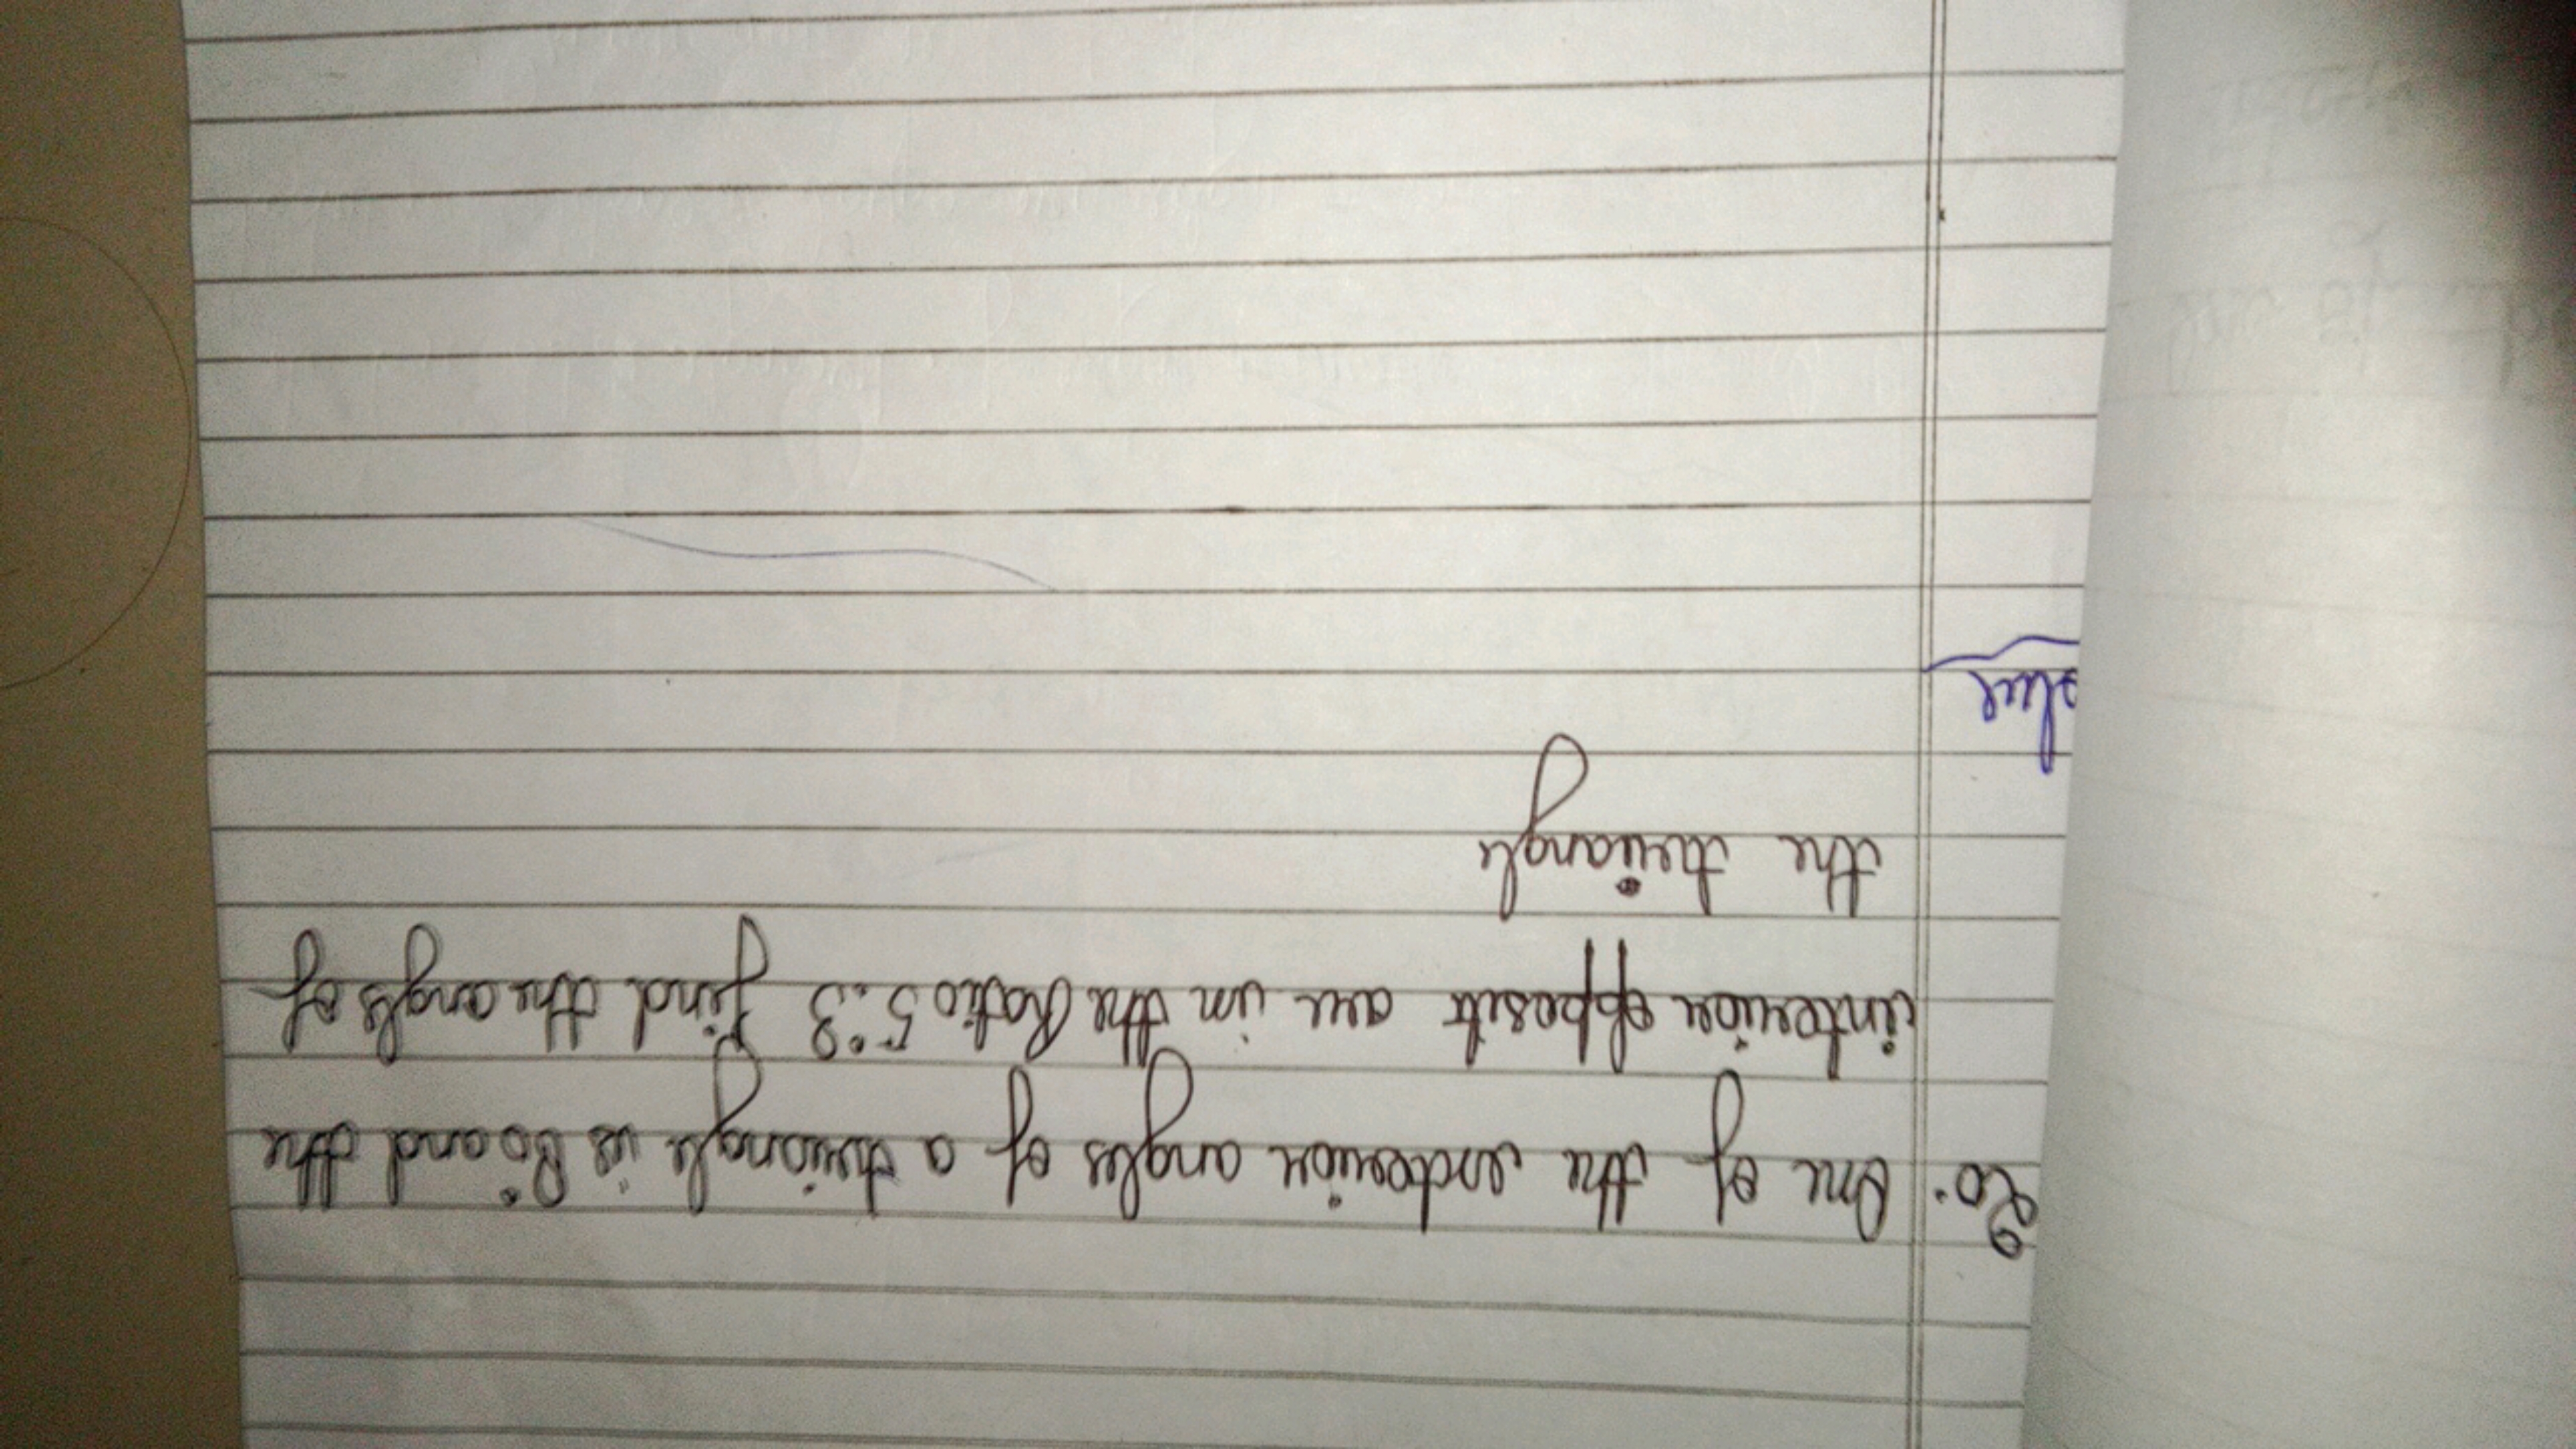 20. One of the exterior angles of a triangle is 80° and the
interior opposit are in the Ratio 5:3 find the angls of
the triangle